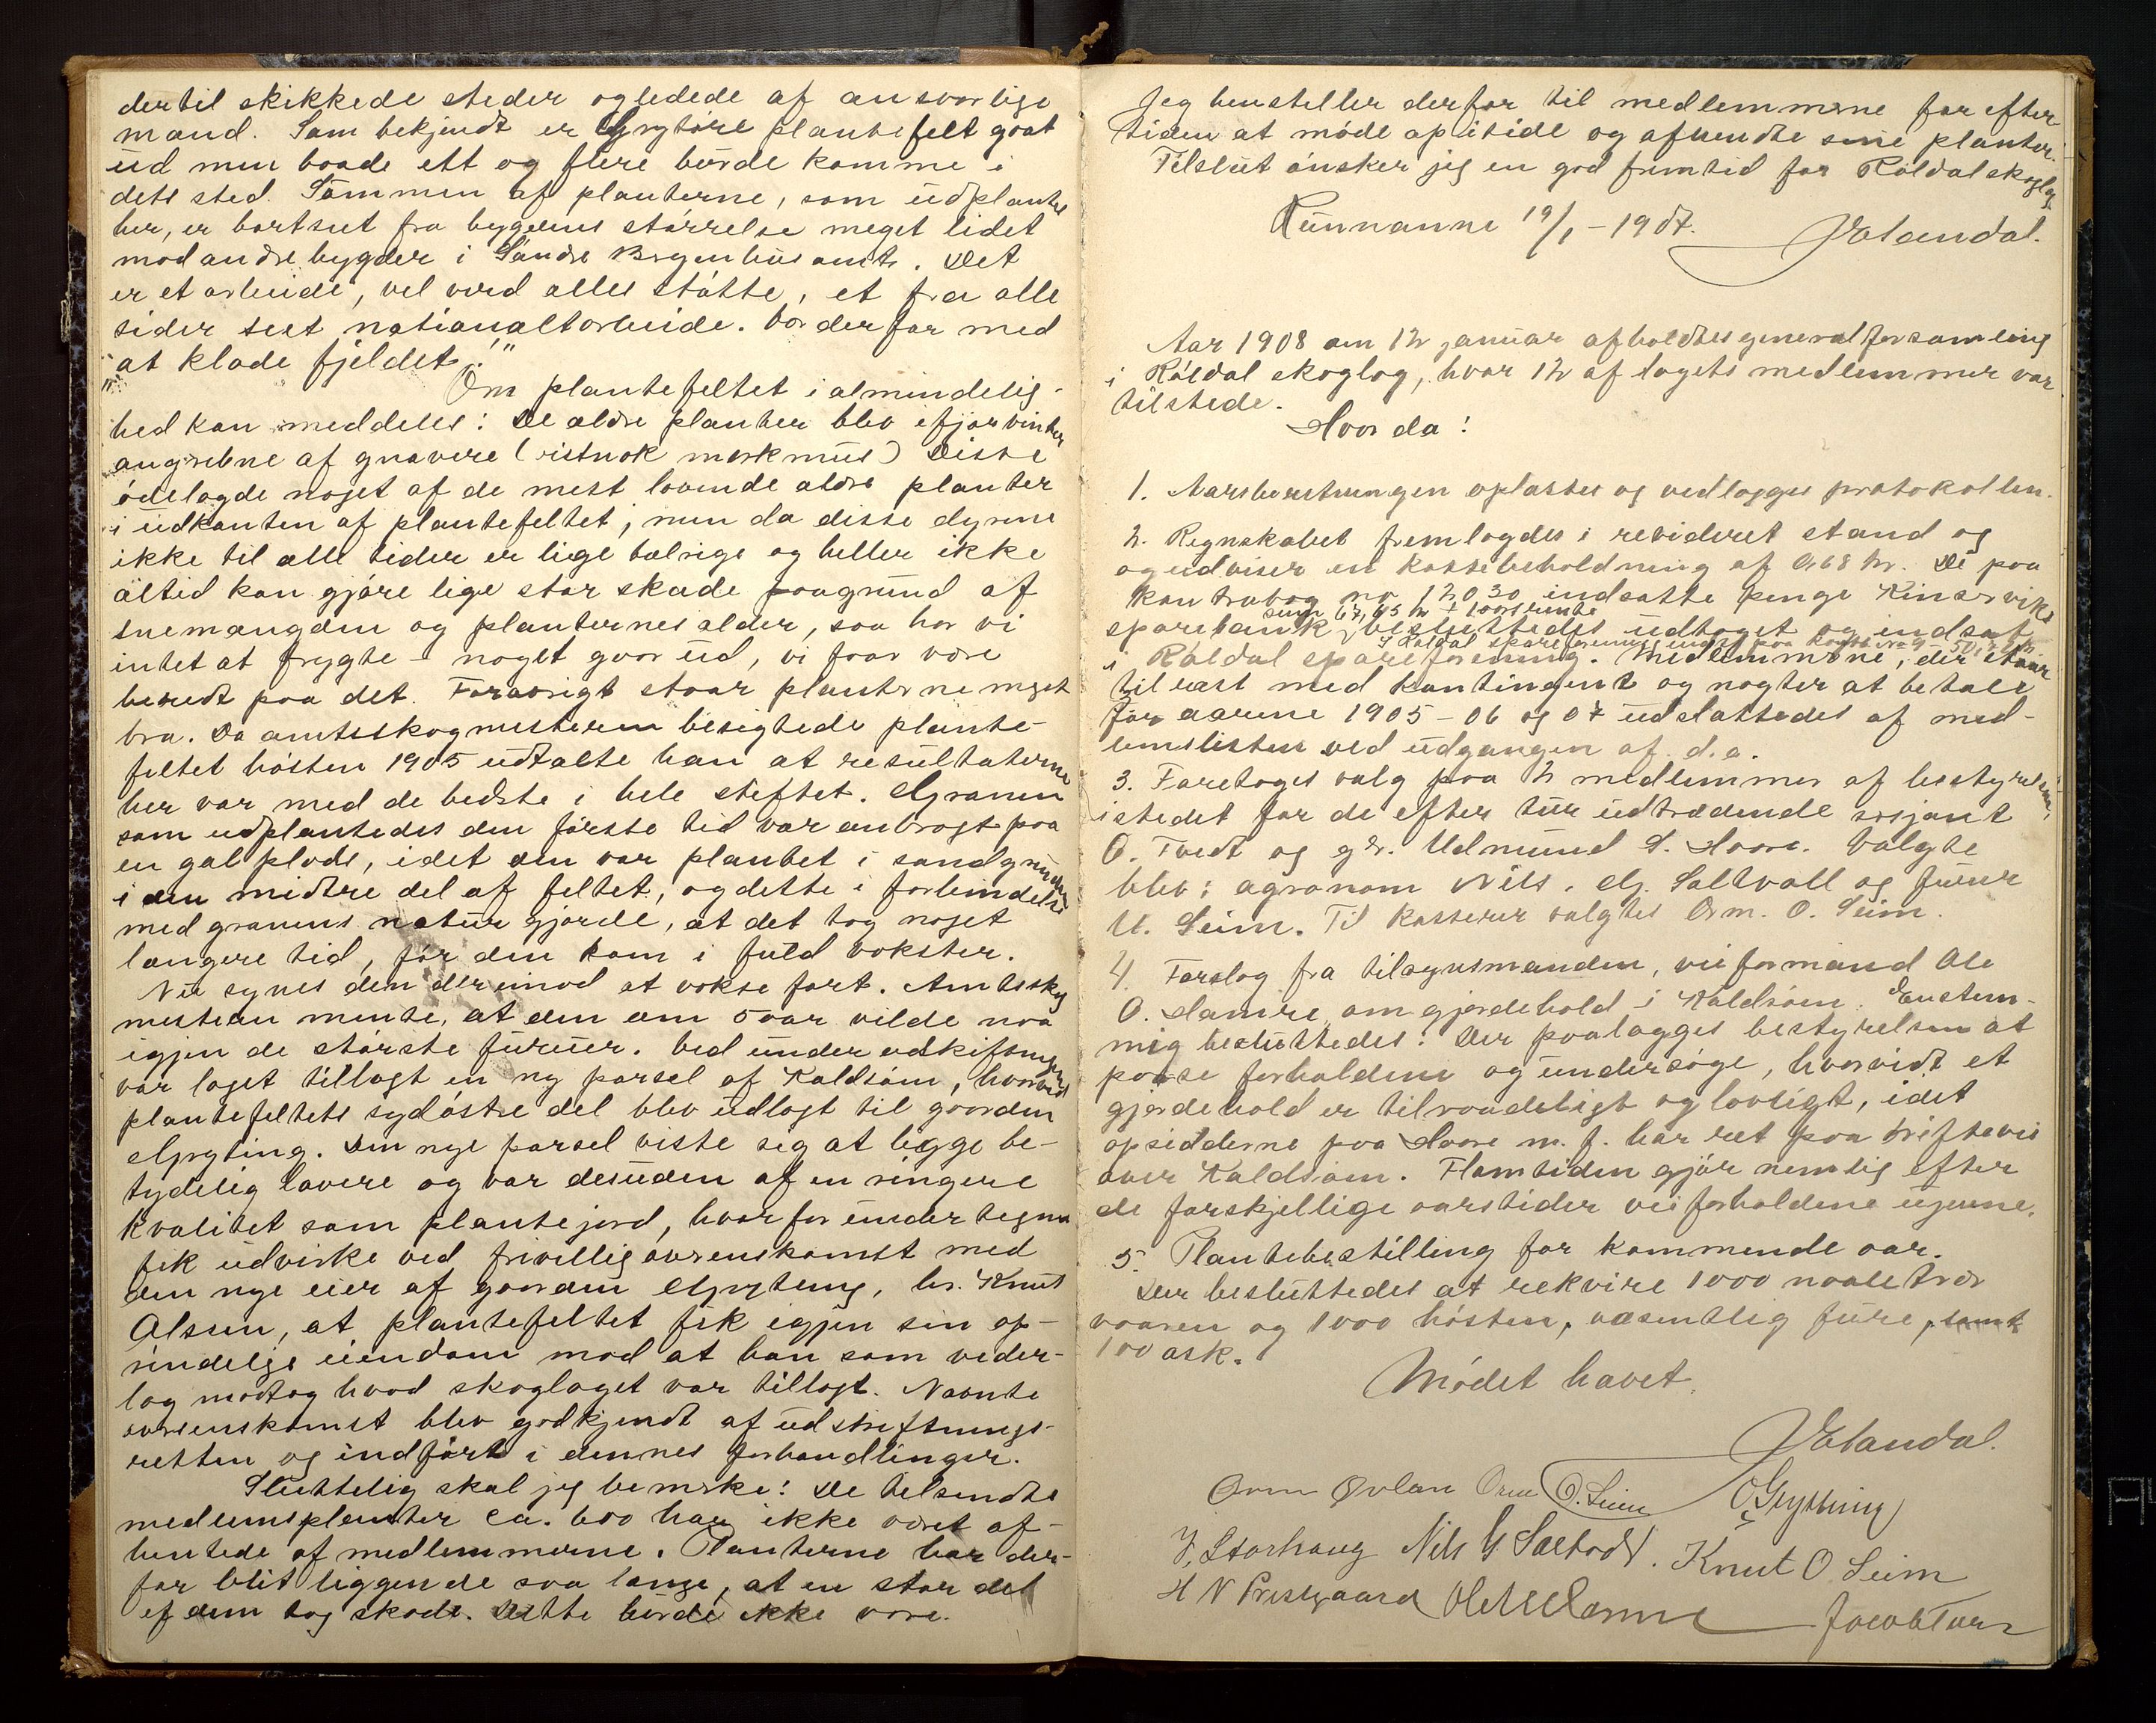 dertil skikkede steder og ledede af ansvarlige
mænd. Som bekjendt er Grytøre plantefelt gaat
ud men baade ett og flere burde komme i
dets sted. Summen af planterne, som udplantes
her, er bortseet fra bygdens størrelse meget lidet
mod andre bygder i Søndre Bergenhus amt. Det
er et arbeide, vel værd alles støtte, et fra alle
sider seet nationaltarbeide. Vær derfor med
at klæde fjeldet!"
Om plantefeltet i almindelig-
hed kan meddeles: De ældre planter blev ifjor vinter
angrebne af gnavere (vistnok markmus) Disse
ødelagde noget af de mest lovende ældre planter
i udkanten af plantefeltet; men da disse dyrene
ikke til alle tider er lige talrige og heller ikke
altid kan gjøre lige stor skade paagrund af
snemængden og planternes alder, saa har vi
intet at frygte – noget gaar ud, vi faar være
beredt paa det. Forøvrigt staar planterne meget
bra. Da amtsskogmesteren besigtede plante-
feltet høsten 1905 udtalte han at resultaterne
her var med de bedste i hele stiftet. Granen
som udplantedes den første tid var anbragt paa
en gal plads, idet den var plantet i sandgrunden
i den midtre del af feltet, og dette i forbindelse
med granens natur gjorde, at det tog noget
længere tid, før den kom i fuld vokster.
Nu synes den derimod at vokse fort. Amtsskog
mesteren mente, at den om 5 aar vilde naa
igjen de største furuer. Ved underudskiftningen
var laget tillagt en ny parsel af Kaldsøen, hvorved
plantefeltets sydøstre del blev udlagt til gaarden
Gryting. Den nye parsel viste sig at ligge be-
tydelig lavere og var desuden af en ringere
kvalitet som plantejord, hvorfor undertegnede
fik udvirke ved frivillig overenskomst med
den nye eier af gaarden Gryting, hr. Knut
Olsen, at plantefeltet fik igjen sin op-
rindelige eiendom mod at han som veder-
lag modtog hvad skoglaget var tillagt. Nævnte
overenskomst blev godkjendt af udskiftnings-
retten og indført i dennes forhandlinger.
Sluttelig skal jeg bemerke: De tilsendte
medlemsplanter ca. 600 har ikke været af-
hentede af medlemmerne. Planterne har der-
for blit liggende saa længe, at en stor del
af dem tog skade. Dette burde ikke være.
Jeg henstiller derfor til medlemmerne for efter-
tiden at møde op itide og afhendte sine planter.
Tilslut ønsker jeg en god fremtid for Røldal skoglag.
19/1 – 1907.
Aar 1908 den 12 januar afholdtes generalforsamling
i Røldal skoglag, hvor 12 af lagets medlemmer var
tilstede.
Hvor da:
1. Aarsberetningen oplæstes og vedlægges protokollen.
2. Regnskabet fremlagdes i revideret stand og
og udviser en kassebeholdning af 0,68 kr. De paa
kontrabog no 12030 indsatte penge Kinserviks
sparebank, besluttedes udtaget og indsat
i Røldal spareforening. Medlemmerne, der staar
til rest med kontingent og nægter at betale
for aarene 1905 – 06 og 07 udslettedes af med-
lemslisten ved udgangen af d. a.
3. Foretoges valg paa 2 medlemmer af bestyrelsen,
istedet for de efter tur udtrædende sersjant
O. Tvedt og gbr. Udmund S. Haare. Valgte
blev: agronom Nils. G. Saltvold og furer
U. Seim. Til kasserer valgtes Orm. O. Seim.
4. Forslag fra tilsynsmanden, veiformand Ole
O. Hamre, om gjærdehold i Kaldsøen. Enstem-
mig besluttedes: Der paalægges bestyrelsen at
passe forholdene og undersøge, hvorvidt et
gjærdehold er tilraadeligt og lovligt, idet
opsidderne paa Haare m. f. har ret paa driftevei
over Kaldsøen. Flomtiden gjør nemlig efter
de forskjellige aarstider veiforholdene ujevne.
5. Plantebestilling for kommende aar.
Der besluttedes at rekvire 1000 naaletrær
vaaren og 1000 høsten, væsentlig furu, samt
100 ask.
Mødet hævet.
Orm O. Seim
O Gryting
J. Storhaug
Knut O. Seim
H N Prestgaard